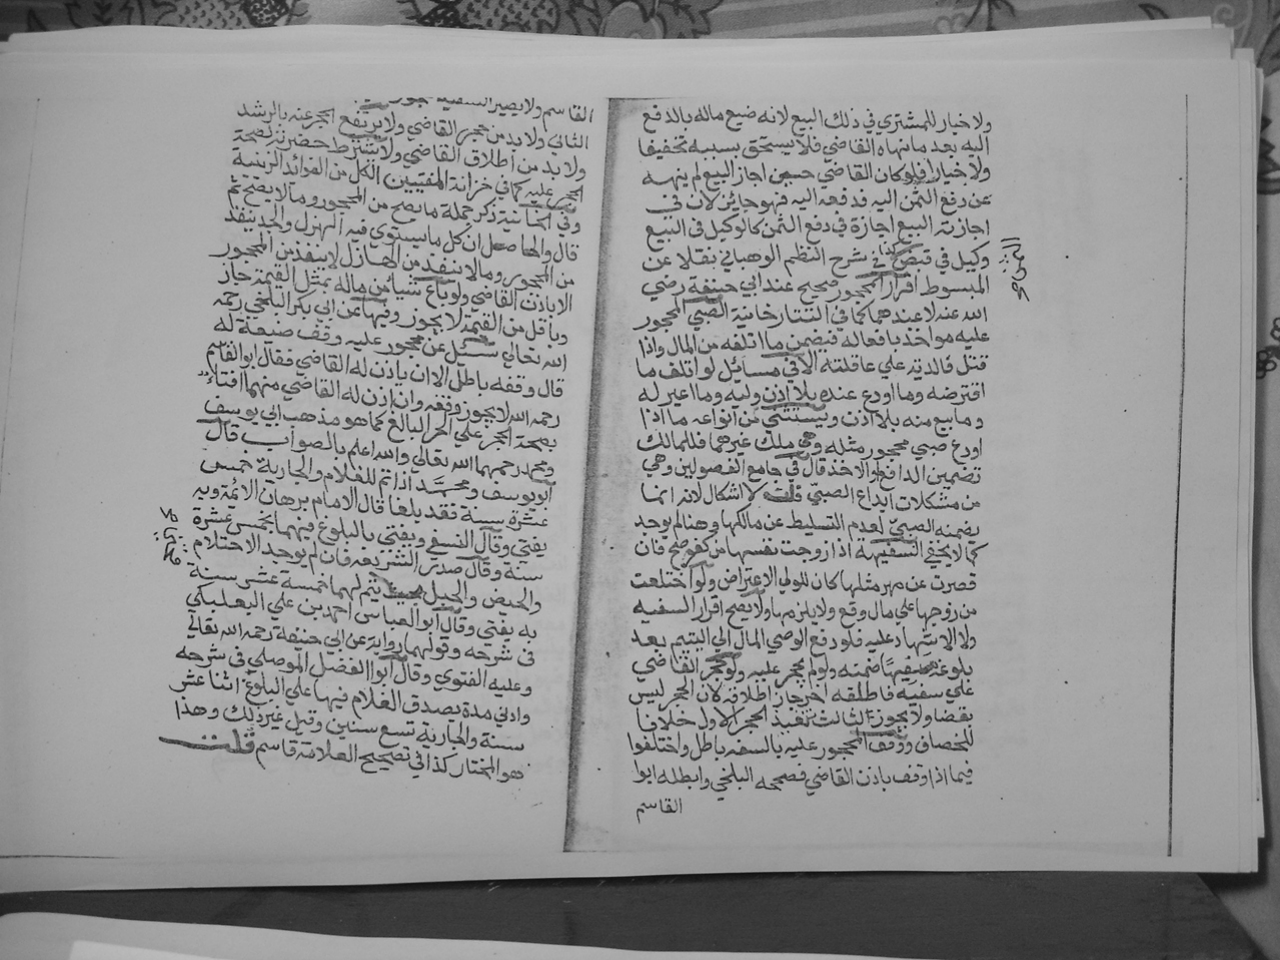 ولا خيار للمشتري في ذلك البيع لانه ضيع ماله بالدفع
اليه بعد ما نهاه القاضي فلا يستحق بسببه تخفيفا
ولا خيارا فلو كان القاضي حين اجاز البيع لم ينهه
عن دفع الثمن اليه فدفعه اليه فهو جايز لان في
اجازته البيع اجازة في دفع الثمن كالوكيل في البيع
وكيل في قبض كذا في شرح النظم الوهباني نقلا عن
المبسوط اقرار المحجور صحيح عند ابي حنيفة رضي
الله عنه لا عندهما كما في التتارخانية الصبي المحجور
عليه مواخذ بافعاله فيضمن ما اتلفه من المال واذا
قتل فالدية علي عاقلته الا في مسائل لو اتلف ما
اقترضه وما اودع عنده بلا اذن وليه وما اعير له
وما بيع منه بلا اذن ويستثني من ايداعه ما اذا
اودع صبي محجور مثله وهي ملك غيرهما فللمالك
تضمين الدافع او الاخذ قال في جامع الفصولين وهي
من مشكلات ايداع الصبي قلت لا اشكال لانه انما
يضمنه الصبي لعدم التسليط عن مالكها وهنا لم يوجد
كما لا يخفي السفيهة اذا زوجت نفسها من كفو صح فان
قصرت عن مهر مثلها كان للولي الاعتراض ولو اختلعت
من زوجها علي مال وقع ولا يلزمها ولا يصح اقرار السفيه
ولا الاشهاد عليه فلو دفع الوصي المال الي اليتيم بعد
بلوغه سفيها ضمنه ولو لم يحجر عليه ولو حجر القاضي
علي سفيه فاطلقه اخر جاز اطلاقه لان الحجر ليس
بقضا ولا يجوز لثالث تنفيذ الحجر الاول خلافا
للخصاف ووقف المحجور عليه بالسفه باطل واختلفوا
فيما اذا وقف باذن القاضي فصححه البلخي وابطله ابوا
القاسم
القاسم ولا يصير السفيه
الثاني ولا بد من حجر القاضي ولا يرتفع الحجر عنه بالرشد
ولا بد من اطلاق القاضي ولا يشترط حضرته لصحة
الحجر عليه كما في خزانة المفتيين الكل من الفوائد الزينية
وفي الخانية ذكر جملة ما يصح من المحجور وما لا يصح ثم
قال والحاصل ان كل ما يستوي فيه الهزل والجد ينفذ
من المحجور وما لا ينفذ من الهازل لا ينفذ من المحجور
الا باذن القاضي ولو باع شيئا من ماله بمثل القيمة جاز
وباقل من القيمة لا يجوز وفيها عن ابي بكر البلخي رحمه
الله تعالي سئل عن محجور عليه وقف ضيعة له
قال وقفه باطل الا ان ياذن له القاضي فقال ابو القاسم
رحمه الله لا يجوز وقفه وان اذن له القاضي منهما افتاء
بصحة الحجر علي الحر البالغ كما هو مذهب ابي يوسف
ومحمد رحمهما الله تعالي والله اعلم بالصواب قال
ابو يوسف ومحمد اذا تم للغلام والجارية خمس
عشرة سنة فقد بلغا قال الامام برهان الائمة وبه
يفتي وقال النسفي ويفتي بالبلوغ فيهما بخمس عشرة
سنة وقال صدر الشريعه فان لم يوجد الاحتلام
والحيض والحبل يتم لهما خمسة عشر سنة
به يفتي وقال ابو العباس احمد بن علي البعلبكي
في شرحه وقولهما رواية عن ابي حنيفة رحمه الله تعالي
وعليه الفتوي وقال ابوا الفضل الموصلي في شرحه
وادني مدة يصدق الغلام فيها علي البلوغ اثنا عشر
سنة والجارية تسع سنين وقيل غير ذلك وهذا
هو المختار كذا في تصحيح العلامة قاسم قلت